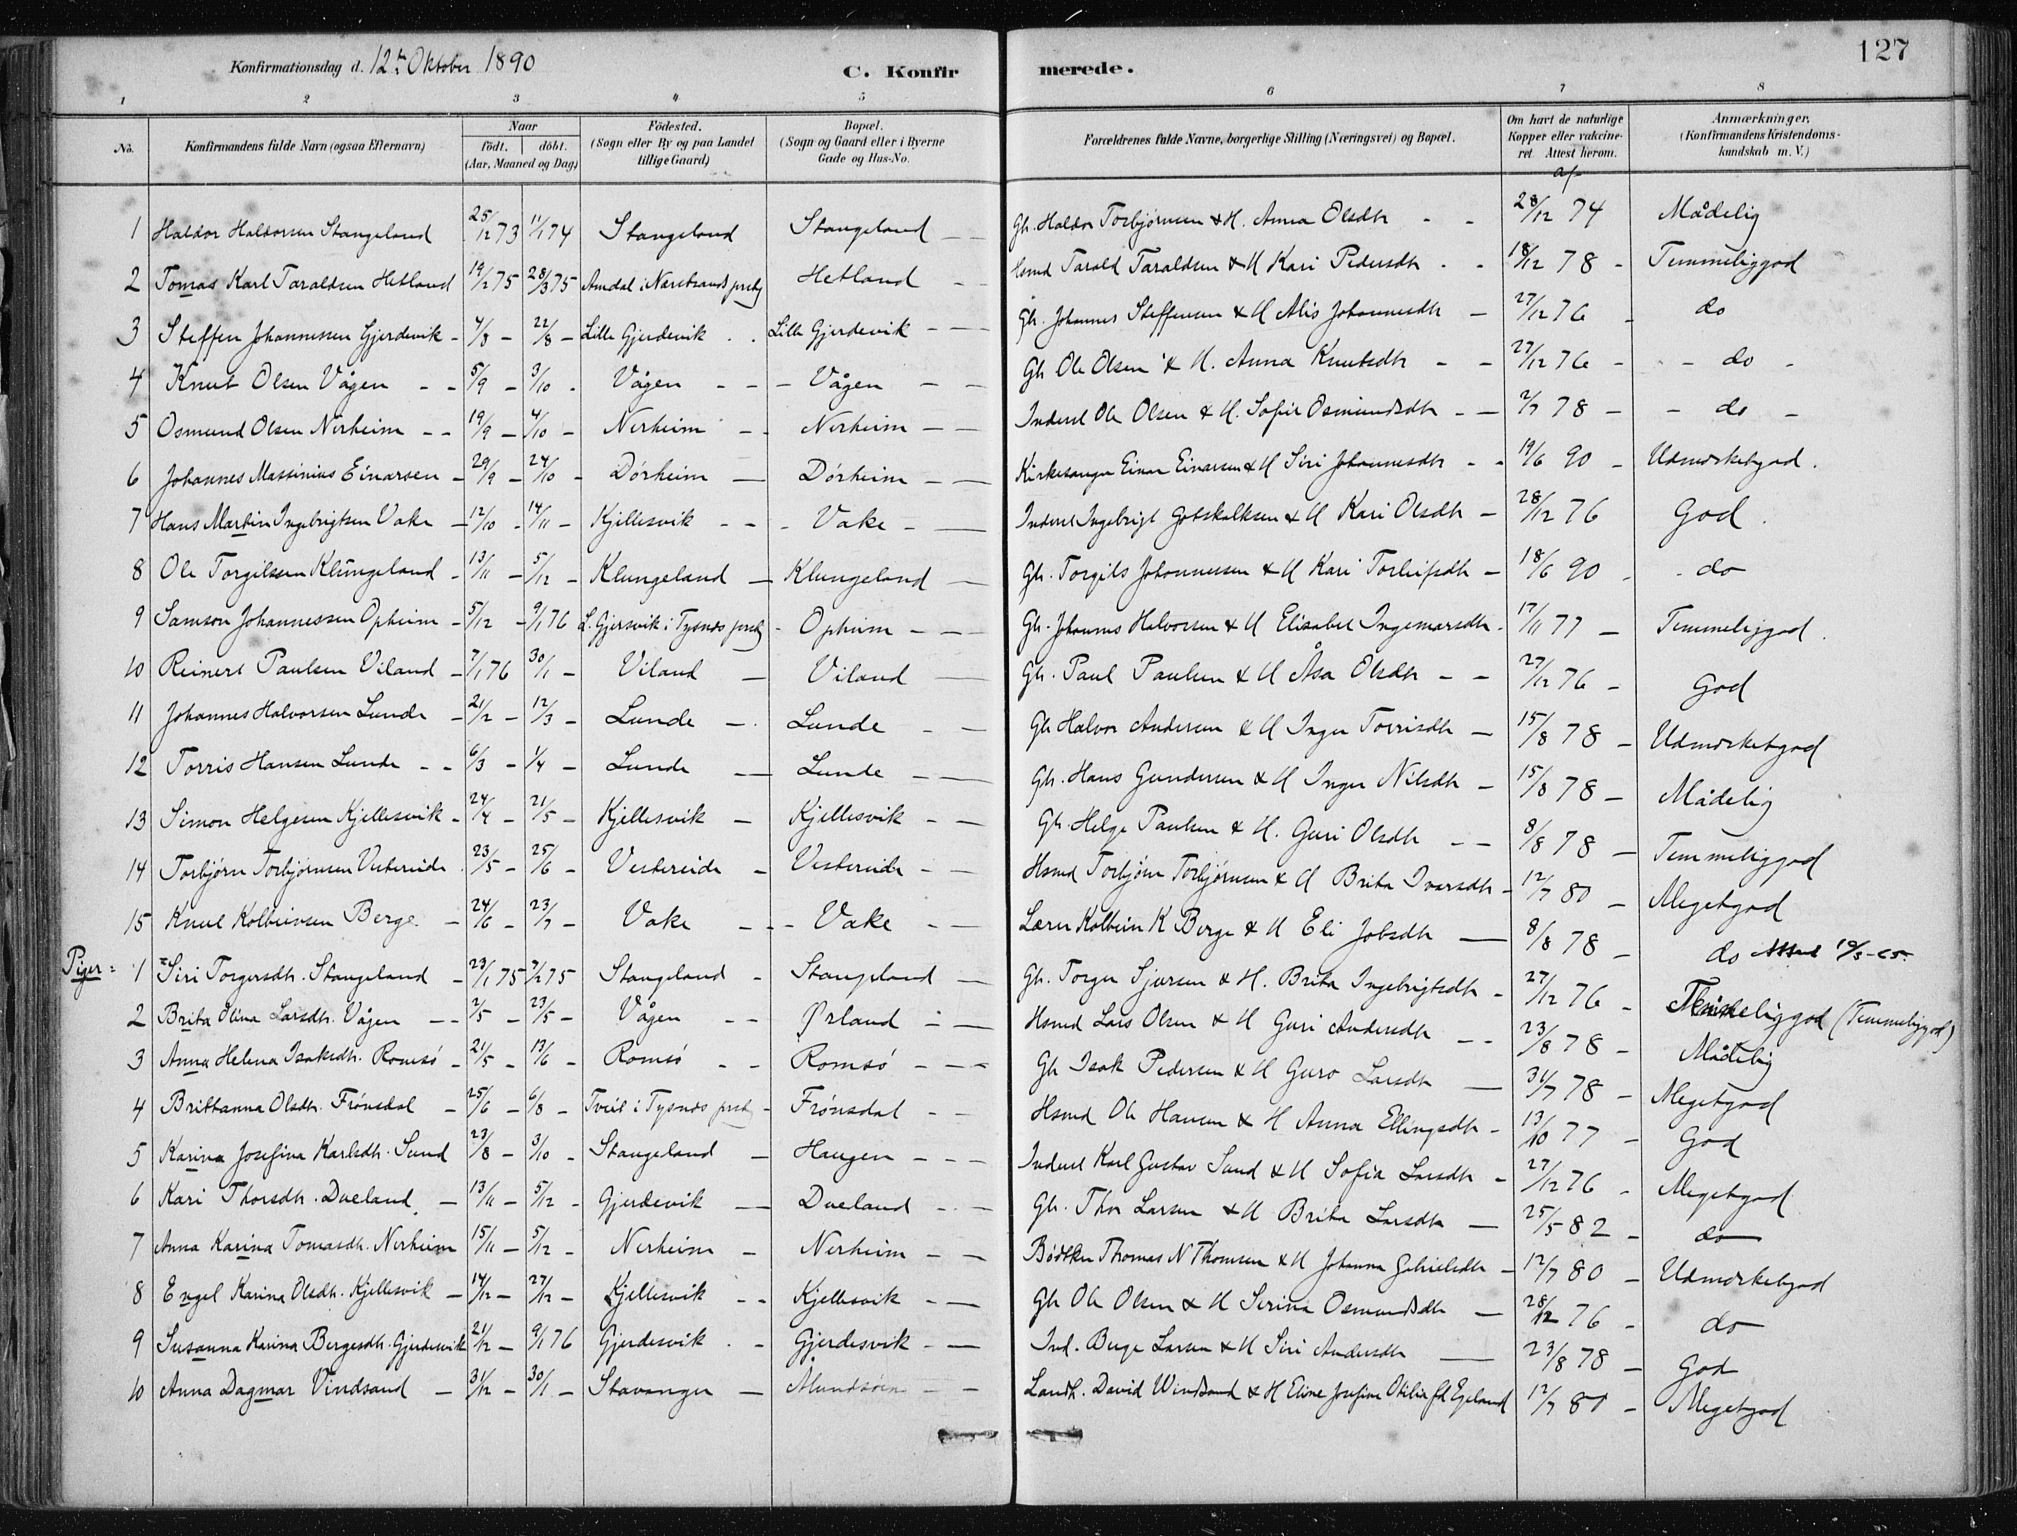 127
Konfirmationsdag d. 12te Oktober 1890
C. Konfirmerede.
1 2 3 4 5 6 7 8
No. Konfirmandens fulde Navn (ogsaa Efternavn) Naar födt. döbt. (Aar, Maaned og Dag) Födested. (Sogn eller By og paa Landet tillige Gaard) Bopæl. (Sogn og Gaard eller i Byerne Gade og Hus-No. Forældrenes fulde Navne, borgerlige Stilling (Næringsvei) og Bopæl. Om havt de naturlige Kopper eller vakcineret. Attest herom. Anmærkninger. (Konfirmandens Kristendomskundskab m. V.)
af
1 Haldor Haldorsen Stangeland 25/12 73 11/1 74 Stangeland Stangeland Gb. Haldor Torbjørnsen & H. Anna Olsdtr 28/12 74 Mådelig
2 Tomas Karl Taraldsen Hetland 19/2 75 28/3 75 Amdal i Nærstrands prstg Hetland Hsmd Tarald Taraldsen & H Kari Pedersdtr 18/12 78 Temmeliggod
3 Steffen Johannessen Gjerdevik 4/8 22/8 Lille Gjerdevik Lille Gjerdevik Gb. Johannes Steffensen & H Alis Johannesdtr 27/12 76 do
4 Knut Olsen Vågen 5/9 3/10 Vågen Vågen Gb Ole Olsen & H. Anna Knutsdtr 27/12 76 do
5 Osmund Olsen Nerheim 19/9 4/10 Nerheim Nerheim Inderst Ole Olsen & H. Sofie Osmundsdtr 2/7 78 do
6 Johannes Massinius Einarsen 29/9 24/10 Dørheim Dørheim Kirkesanger Einar Einarsen & H Siri Johannesdtr 19/6 90 Udmerketgod
7 Hans Martin Ingebrigtsen Vake 12/10 14/11 Kjellesvik Vake Inderst Ingebrigt Gotskalksen & H Kari Olsdtr 28/12 76 God
8 Ole Torgilssen Klungeland 13/11 5/12 Klungeland Klungeland Gb. Torgils Johannessen & H Kari Torleifsdtr 18/6 90 do
9 Samson Johannessen Opheim 5/12 9/1 76 L. Gjersvik i Tysnæs prstg Opheim Gb. Johannes Halvorsen & H Elisabet Ingemarsdtr 17/11 77 Temmeliggod
10 Reinert Paulsen Viland 7/1 76 30/1 Viland Viland Gb. Paul Paulsen & H Åsa Olsdtr 27/12 76 God
11 Johannes Halvorsen Lunde 21/2 12/3 Lunde Lunde Gb Halvor Andersen & H Inger Torrisdtr 15/8 78 Udmerketgod
12 Torris Hansen Lunde 6/3 1/4 Lunde Lunde Gb. Hans Gundersen & H Inger Nilsdtr 15/8 78 Mådelig
13 Simon Helgesen Kjellesvik 24/4 21/5 Kjellesvik Kjellesvik Gb. Helge Paulsen & H. Guri Olsdtr 8/8 78 Temmeliggod
14 Torbjørn Torbjørnsen Vestereide 23/5 25/6 Vestereide Vestereide Hsmd Torbjørn Torbjørnsen & H Brita Ivarsdtr 12/7 80 Megetgod
15 Knut Kolbeinsen Berge 24/6 23/7 Vake Vake Lærer Kolbein K Berge & H Eli Jobsdtr 8/8 78 do Attest
Piger:
1 Siri Torgersdtr. Stangeland 23/1 75 7/2 75 Stangeland Stangeland Gb. Torger Sjursen & H. Brita Ingebrigtsdtr 27/12 76 (Temmeliggod)
2 Brita Olina Larsdtr. Vågen 2/5 23/5 Vågen Ørland Hsmd Lars Olsen & H Guri Andersdtr 23/8 78 Mådelig
3 Anna Helena Isaksdtr. Romsø 21/5 13/6 Romsø Romsø Gb Isak Pedersen & H Guro Larsdtr 31/7 78 Megetgod
4 Brithanna Olsdtr. Frønsdal 25/6 6/8 Tveit i Tysnæs prstg Frønsdal Hsmd Ole Hansen & H Anna Ellingsdtr 13/10 77 God
5 Karina Josefina Karlsdtr. Sund 23/8 3/10 Stangeland Haugen Inderst Karl Gustav Sund & H Sofia Larsdtr 27/12 76 Megetgod
6 Kari Thorsdtr. Dueland 13/11 5/12 Gjerdevik Dueland Gb. Thor Larsen & H Brita Larsdtr 25/5 82 do
7 Anna Karina Tomasdtr. Nerheim 15/11 5/12 Nerheim Nerheim Bødtker Thomas N Thomsen & H Johanna Gabrielsdtr 12/7 80 Udmerketgod
8 Engel Karina Olsdtr. Kjellesvik 14/12 27/12 Kjellesvik Kjellesvik Gb Ole Olsen & H Serina Osmundsdtr 28/12 76 do
9 Susanna Karina Bergesdtr. Gjerdesvik 21/12 9/1 76 Gjerdesvik Gjerdesvik Ind. Berge Larsen & H Siri Andersdtr 23/8 78 God
10 Anna Dagmar Vindsand 31/12 30/1 Stavanger Landh. David Windsand & H Eline Josefine Otilie fd Egeland 12/7 80 Megetgod